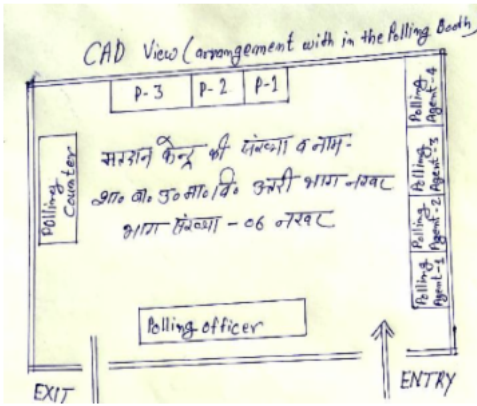 CAD View (arrangement with in the Polling Booth)
P-3 P-2 P-1
Polling Agent-4
Polling Agent-3
Polling Agent-2
Polling Agent-1
Polling Counter
मतदान केन्द्र की संख्या व नाम-
शा० बा० उ० मा० वि० उत्तरी भाग नरवर
भाग संख्या - 06 नरवर
Polling officer
EXIT
ENTRY